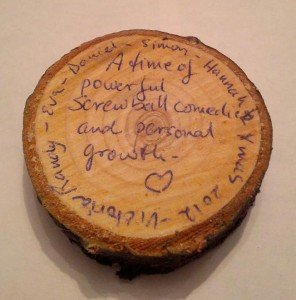 Victoria - Randy - Eva - Daniel - Simon - Hannah
Xmas 2012
A time of
powerful
Screwball comedies
and personal
growth -
♡